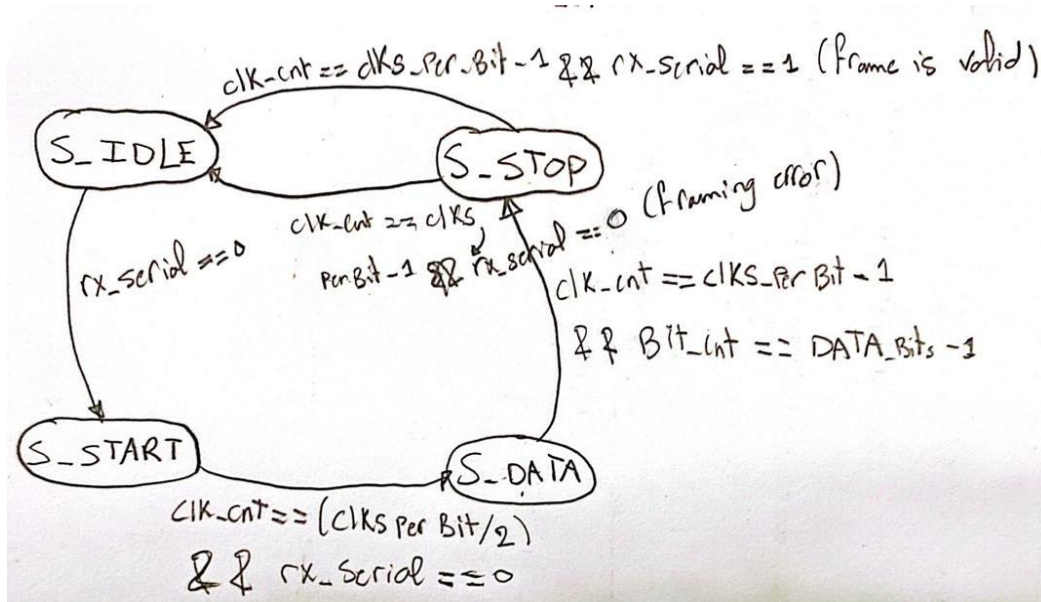 clk_cnt == clks_Per_Bit-1 && rx_serial == 1 (frame is valid)
S_IDLE
S_STOP
clk_cnt == clks
Per Bit-1 && rx_serial == 0 (framing error)
rx_serial == 0
clk_cnt == clks_Per Bit - 1
&& Bit_cnt == DATA_Bits -1
S_START
S_DATA
clk_cnt == (clks Per Bit/2)
&& rx_serial == 0